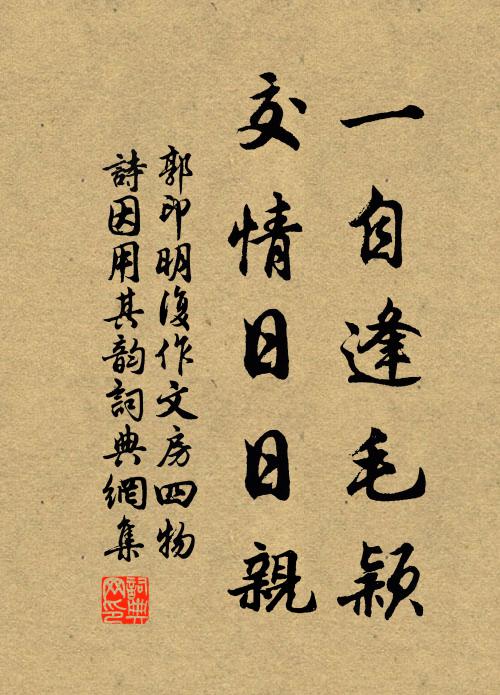 一自逢毛穎
交情日日親
郭印明復作文房四物
詩因用其韵詞典網集